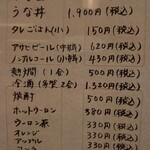 うな丼 1,900円(税込)
タレごはん(小) 150円(税込)
アサヒビール(中瓶) 620円(税込)
ノンアルコール(小瓶) 430円(税込)
熱燗(1合) 500円(税込)
冷酒 1,320円(税込)
焼酎 500円(税込)
ホットウーロン 380円(税込)
ウーロン茶 330円(税込)
オレンジ 330円(税込)
アップル
コーラ